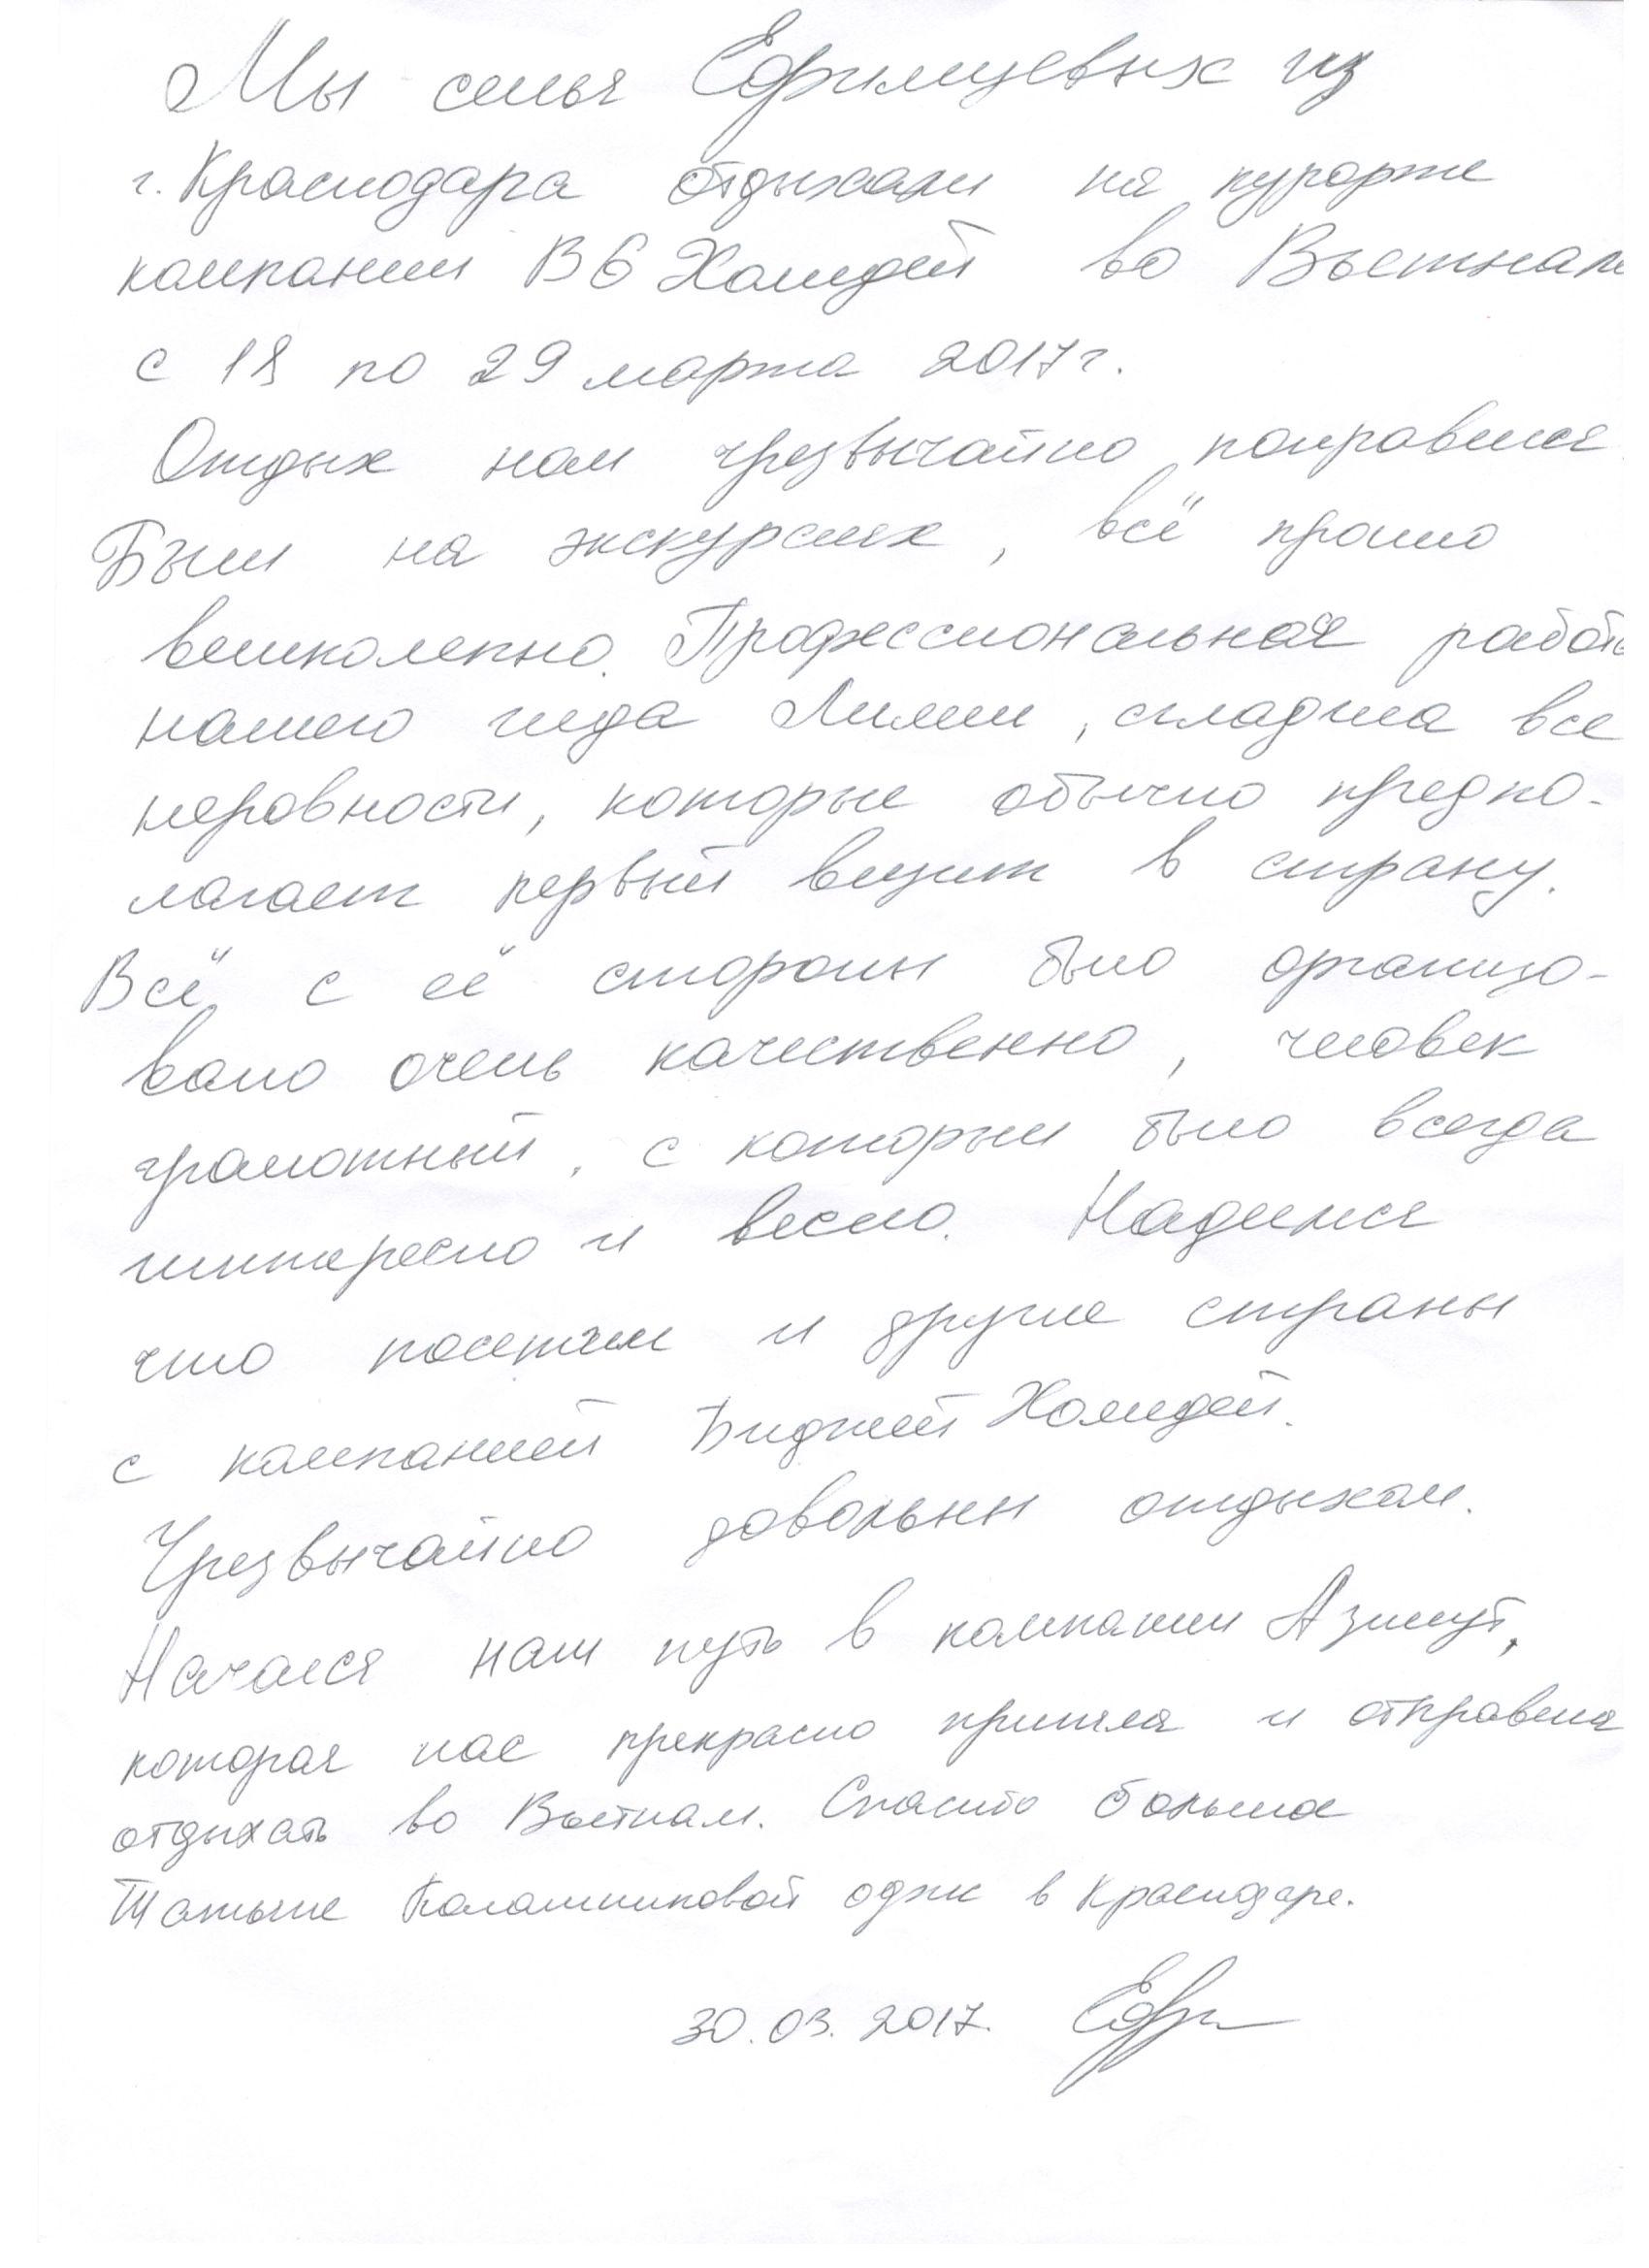 Мы семья Ефимцевых из
г. Краснодара отдыхали на курорте
компании BG Холидей во Вьетнаме
с 18 по 29 марта 2017г.
Отдых нам чрезвычайно понравился.
Были на экскурсиях, всё прошло
великолепно. Профессиональная работа
нашего гида Лилии, сгладила все
неровности, которые обычно предпо-
лагает первый визит в страну.
Всё с её стороны было организо-
вано очень качественно, человек
грамотный, с которым было всегда
интересно и весело. Надеимся
что посетим и другие страны
с компанией Биджей Холидей.
Чрезвычайно довольны отдыхом.
Начался наш путь в компании Азимут,
которая нас прекрасно приняла и отправила
отдыхать во Вьетнам. Спасибо большое
Татьяне Калашниковой офис в Краснодаре.
30.03.2017.